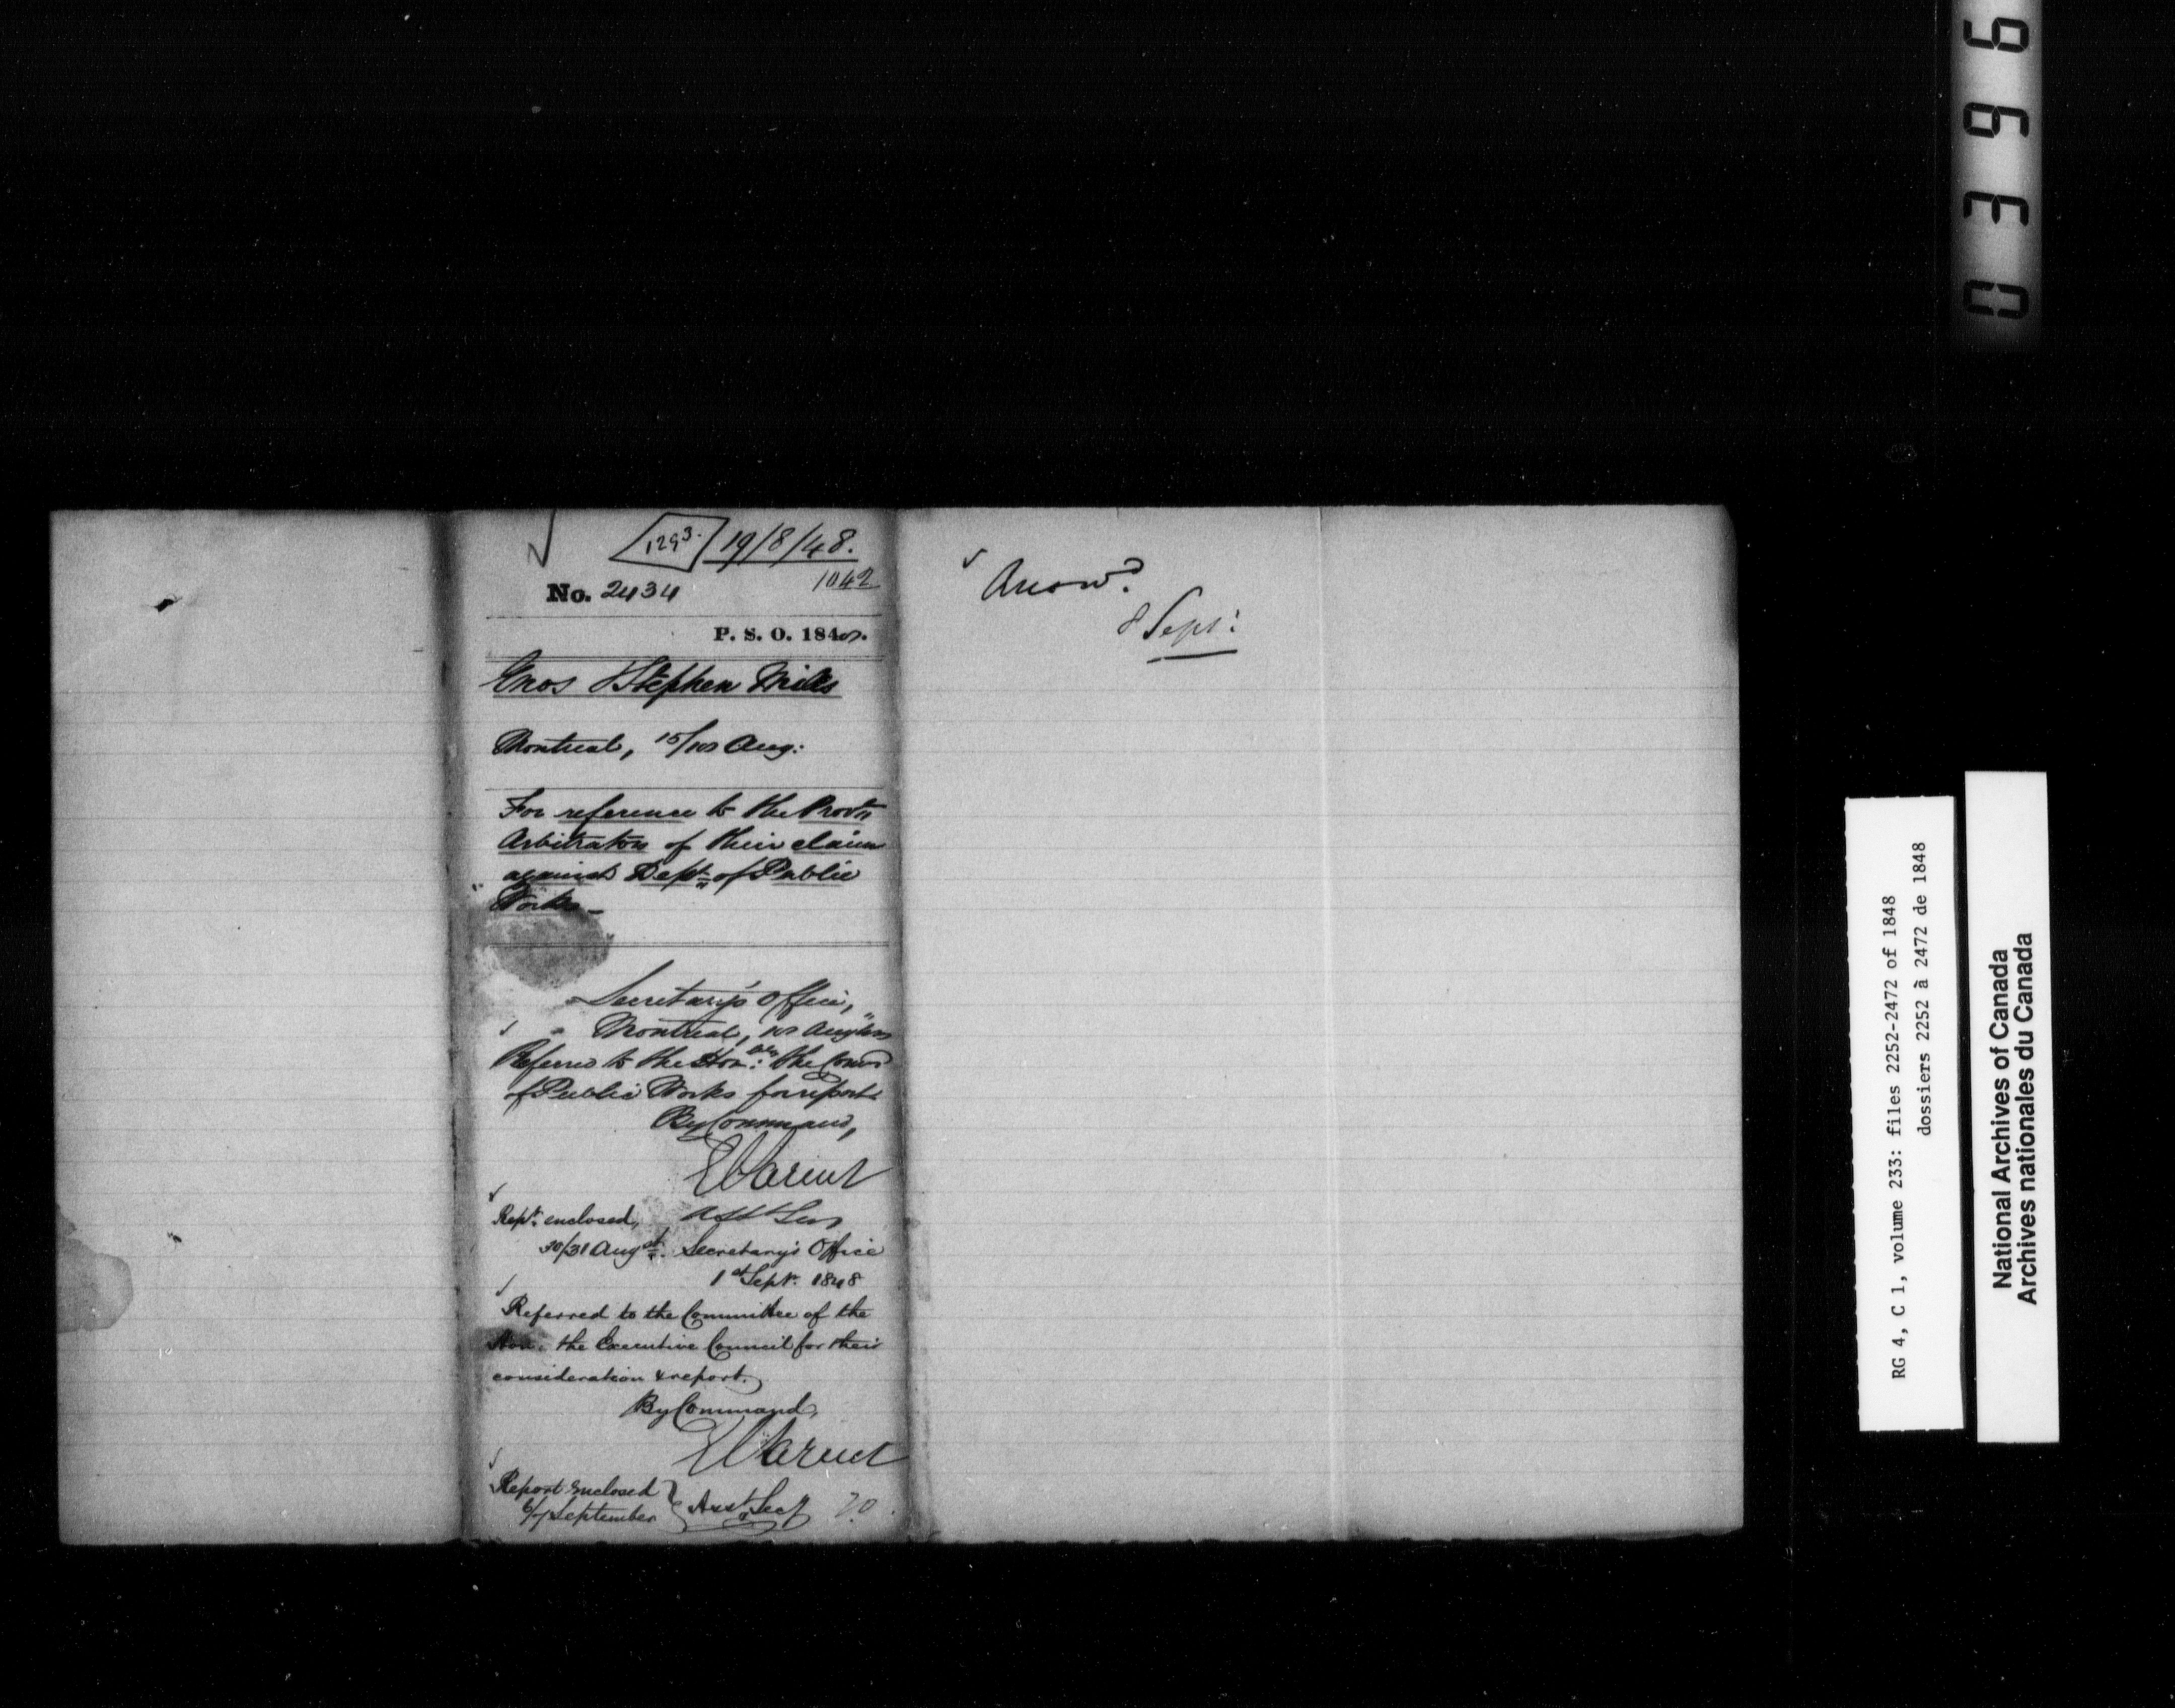 1293. 19/8/48.
1042
No. 2434
P. S. O. 184
Enos & Stephen Mills
Montreal, 15/ Aug:
For reference to the Prov'l
Arbitrators of their claim
against Dept. of Public
Works –
Secretary's Office,
Montreal, Aug
Referred to the Hon:ble the Comrs
of Public Works for report.
By Command,
E Parent
Asst Secy
Rept. enclosed,
30/31 Augst. Secretary's Office
1st Sept. 1848
Referred to the Committee of the
Hon. the Executive Council for their
consideration & report.
By Command,
E Parent
Report enclosed
6/7 September
Asst. Secy
Answd.
8 Sept:
0396
RG 4, C 1, volume 233: files 2252-2472 of 1848
dossiers 2252 à 2472 de 1848
National Archives of Canada
Archives nationales du Canada